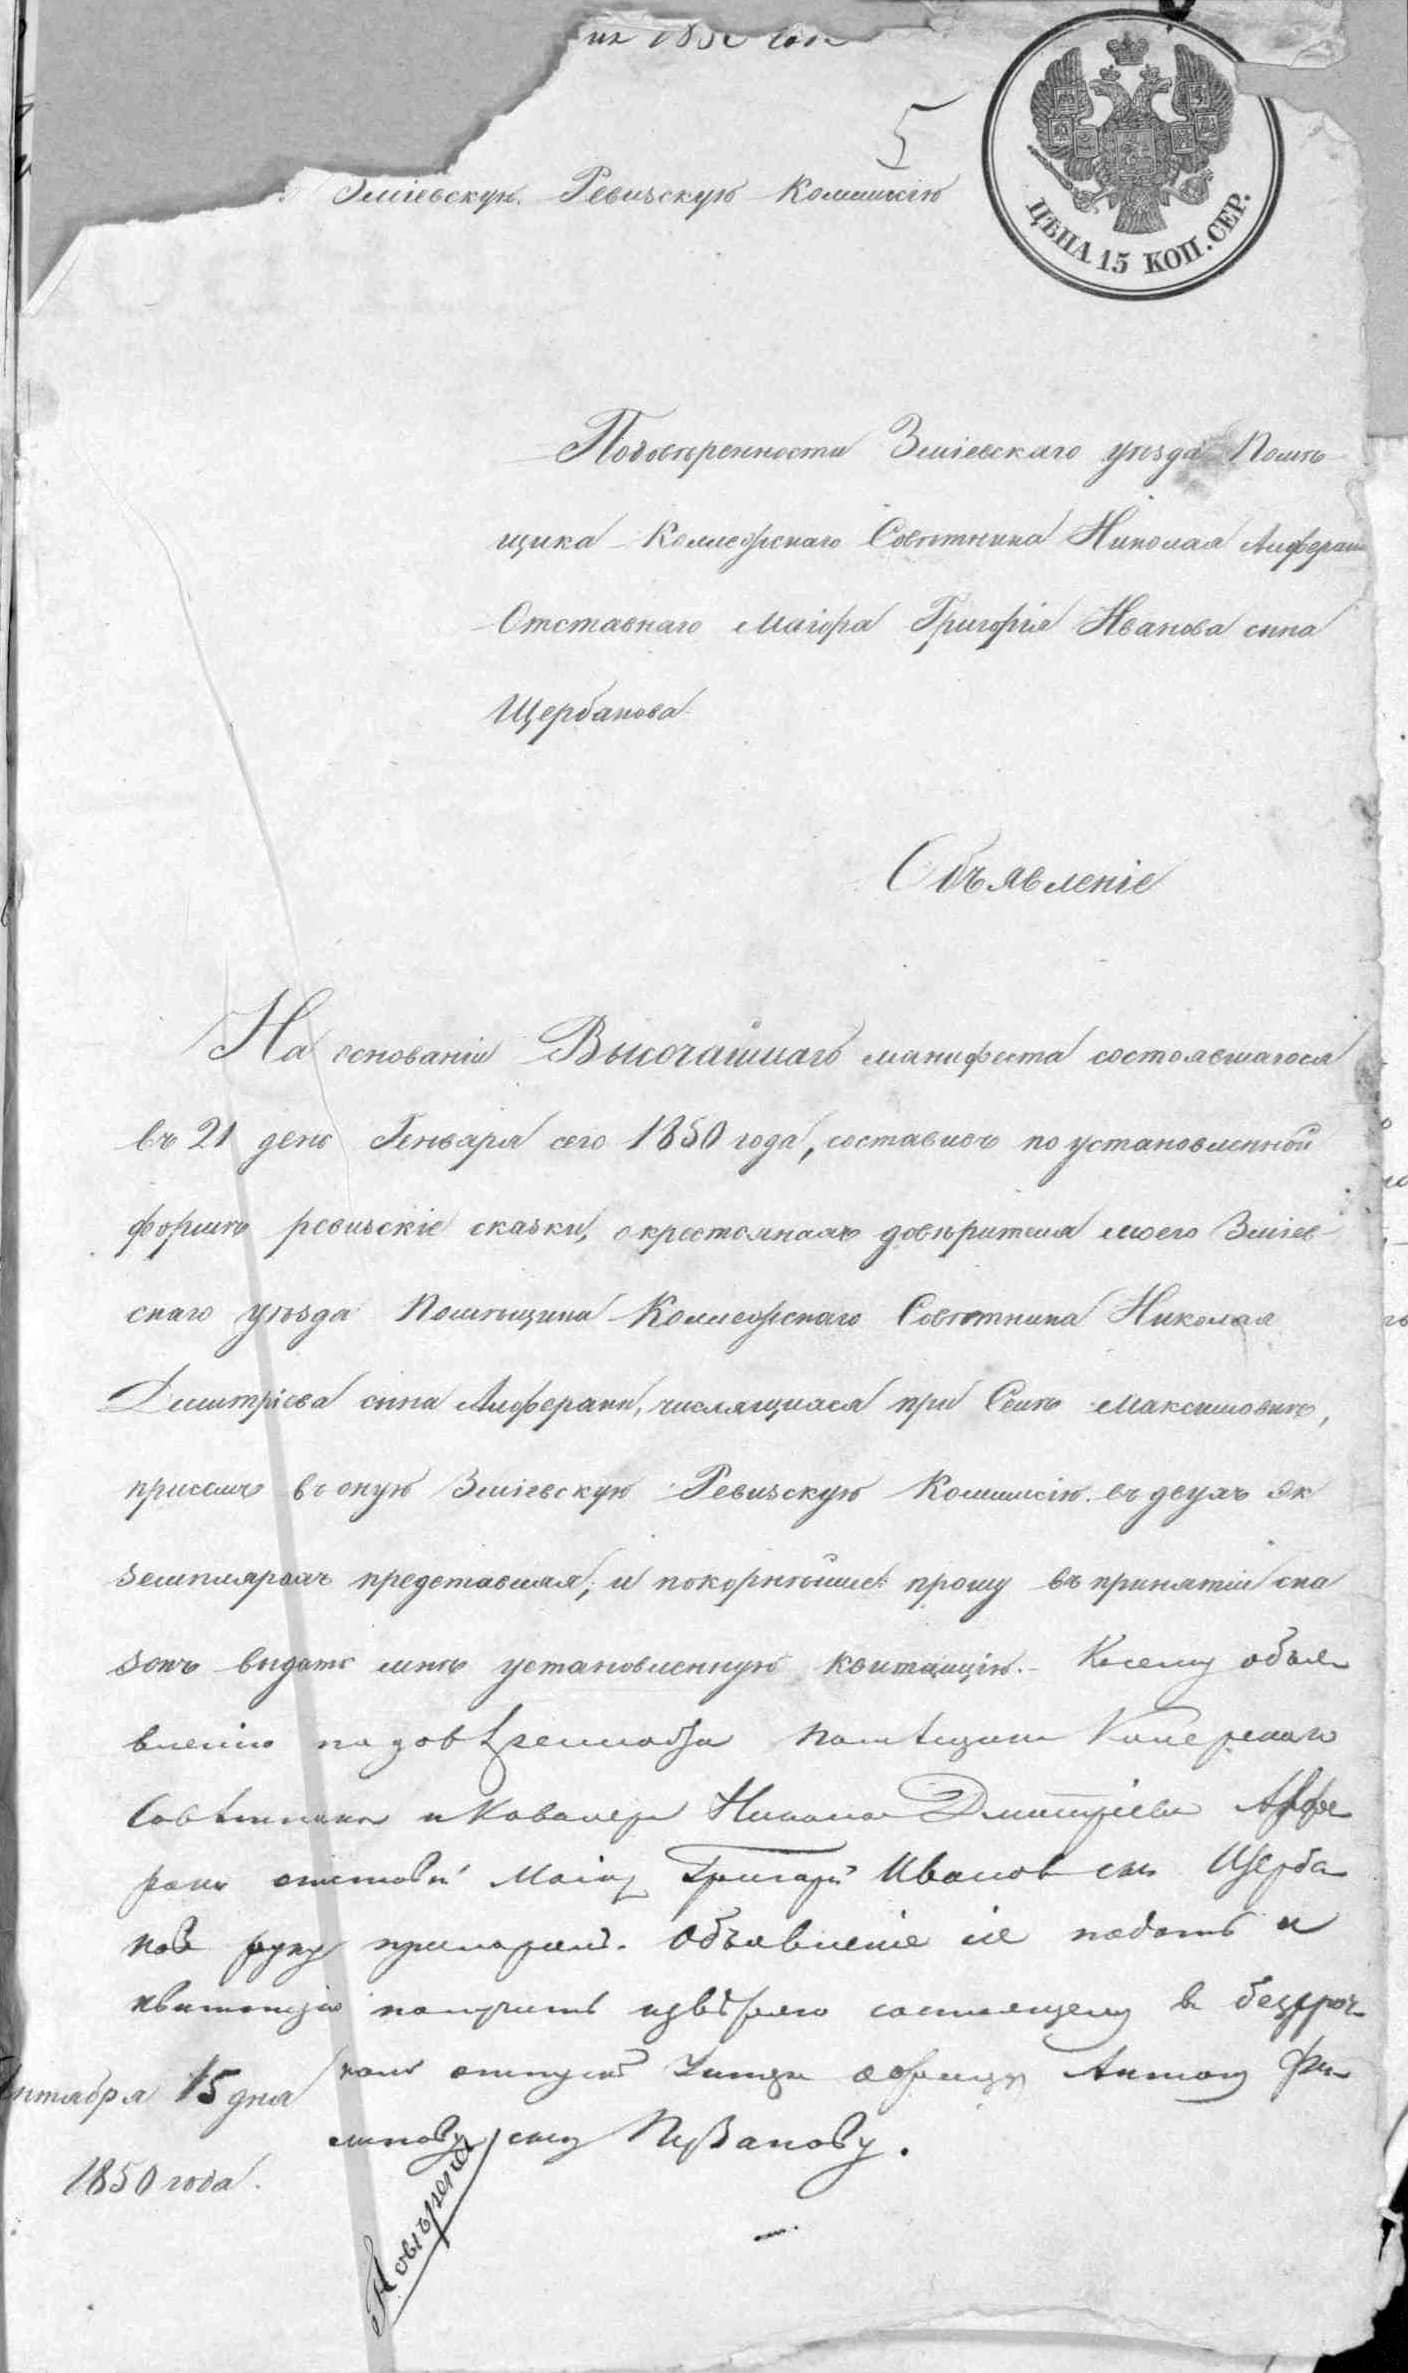 на 1850 года
5
Зміевскую Ревизскую Коммисію
ЦѢНА 15 КОП. СЕР.
Подовѣренности Зміевскаго уѣзда Помѣ
щика Коллежскаго Совѣтника Николая Алфераки
Отставнаго Маіора Григорія Иванова сына
Щербакова
Объявленіе
На основаніи Высочайшаго манифеста состоявшагося
въ 21 день Генваря сего 1850 года, составивъ по установленной
формѣ ревизскіе сказки, о крестьянахъ довѣрителя моего Зміев
скаго уѣзда Помѣщика Коллежскаго Совѣтника Николая
Дмитріева сына Алфераки, числящихся при Селѣ Максимовкѣ,
присемъ въ оную Зміевскую Ревизскую Коммисію въ двухъ эк
земплярахъ представляя, и покорнѣйше прошу въ принятіи ска
зокъ выдать мнѣ установленную квитанцію. Ксему объя
влению по довѣренности помѣщика Колежскаго
Совѣтника и Кавалера Николая Дмитріева Алфе
раки отставной Маіоръ Григорій Ивановъ сынъ Щерба
ковъ руку приложилъ. Объявленіе сіе подать и
квитанцію получить довѣряю состоящему въ безсроч
номъ отпуске Антону Фи
липову сыну Пузанову.
Октября 15 дня
1850 года.
Повѣрено